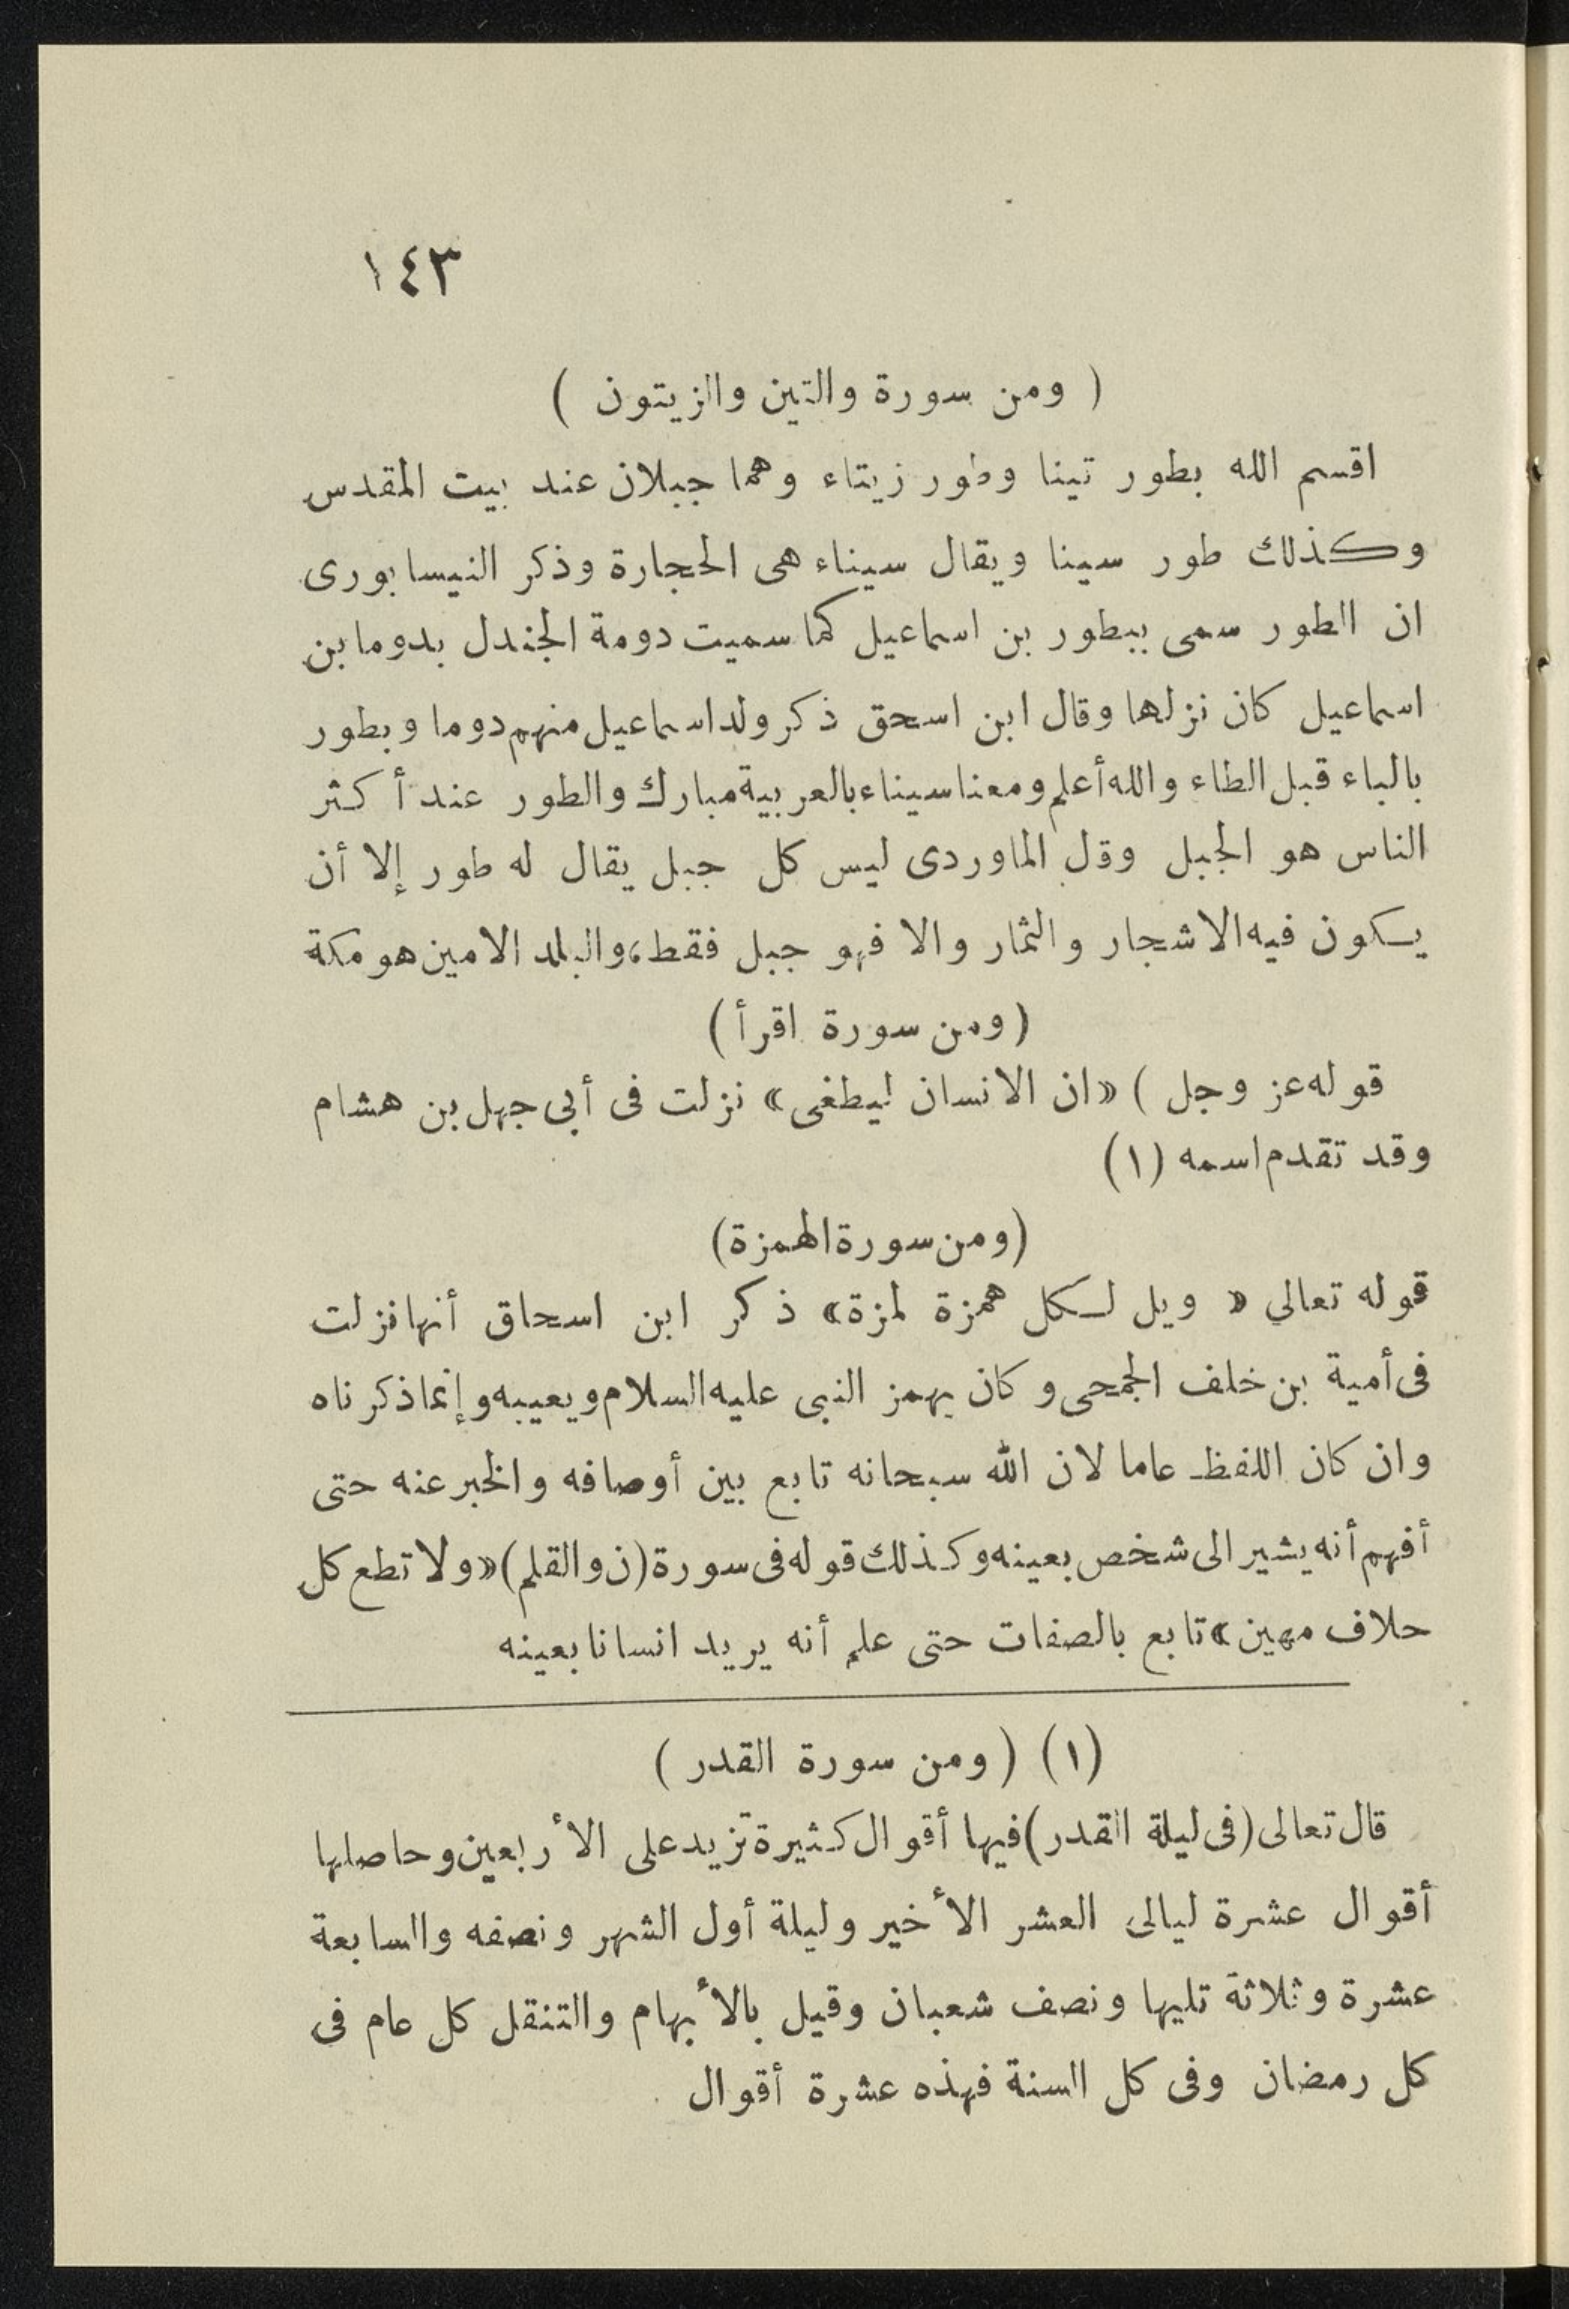 ١٤٣
( ومن سورة والتين والزيتون )
اقسم الله بطور تينا وطور زيتاء وهما جبلان عند بيت المقدس
وكذلك طور سينا ويقال سيناء هى الحجارة وذكر النيسابورى
ان الطور سمى ببطور بن اسماعيل كما سميت دومة الجندل بدوما بن
اسماعيل كان نزلها وقال ابن اسحق ذكر ولد اسماعيل منهم دوما وبطور
بالباء قبل الطاء والله أعلم ومعنا سيناء بالعربية مبارك والطور عند أكثر
الناس هو الجبل وقل الماوردى ليس كل جبل يقال له طور إلا أن
يكون فيه الاشجار والثمار والا فهو جبل فقط، والبلد الامين هو مكة
(ومن سورة اقرأ)
قوله عز وجل ) «ان الانسان ليطغى» نزلت فى أبي جهل بن هشام
وقد تقدم اسمه (١)
(ومن سورة الهمزة)
قوله تعالي « ويل لكل همزة لمزة» ذكر ابن اسحاق أنها نزلت
فى أمية بن خلف الجمحى وكان يهمز النبى عليه السلام ويعيبه وإنما ذكرناه
وان كان اللفظ عاما لان الله سبحانه تابع بين أوصافه والخبر عنه حتى
أفهم أنه يشير الى شخص بعينه وكذلك قوله فى سورة (ن والقلم) «ولا تطع كل
حلاف مهين» تابع بالصفات حتى علم أنه يريد انسانا بعينه
(١) ( ومن سورة القدر )
قال تعالى (فى ليلة القدر) فيها أقوال كثيرة تزيد على الأربعين وحاصلها
أقوال عشرة ليالى العشر الأخير وليلة أول الشهر ونصفه والسابعة
عشرة وثلاثة تليها ونصف شعبان وقيل بالأبهام والتنقل كل عام فى
كل رمضان وفى كل السنة فهذه عشرة أقوال